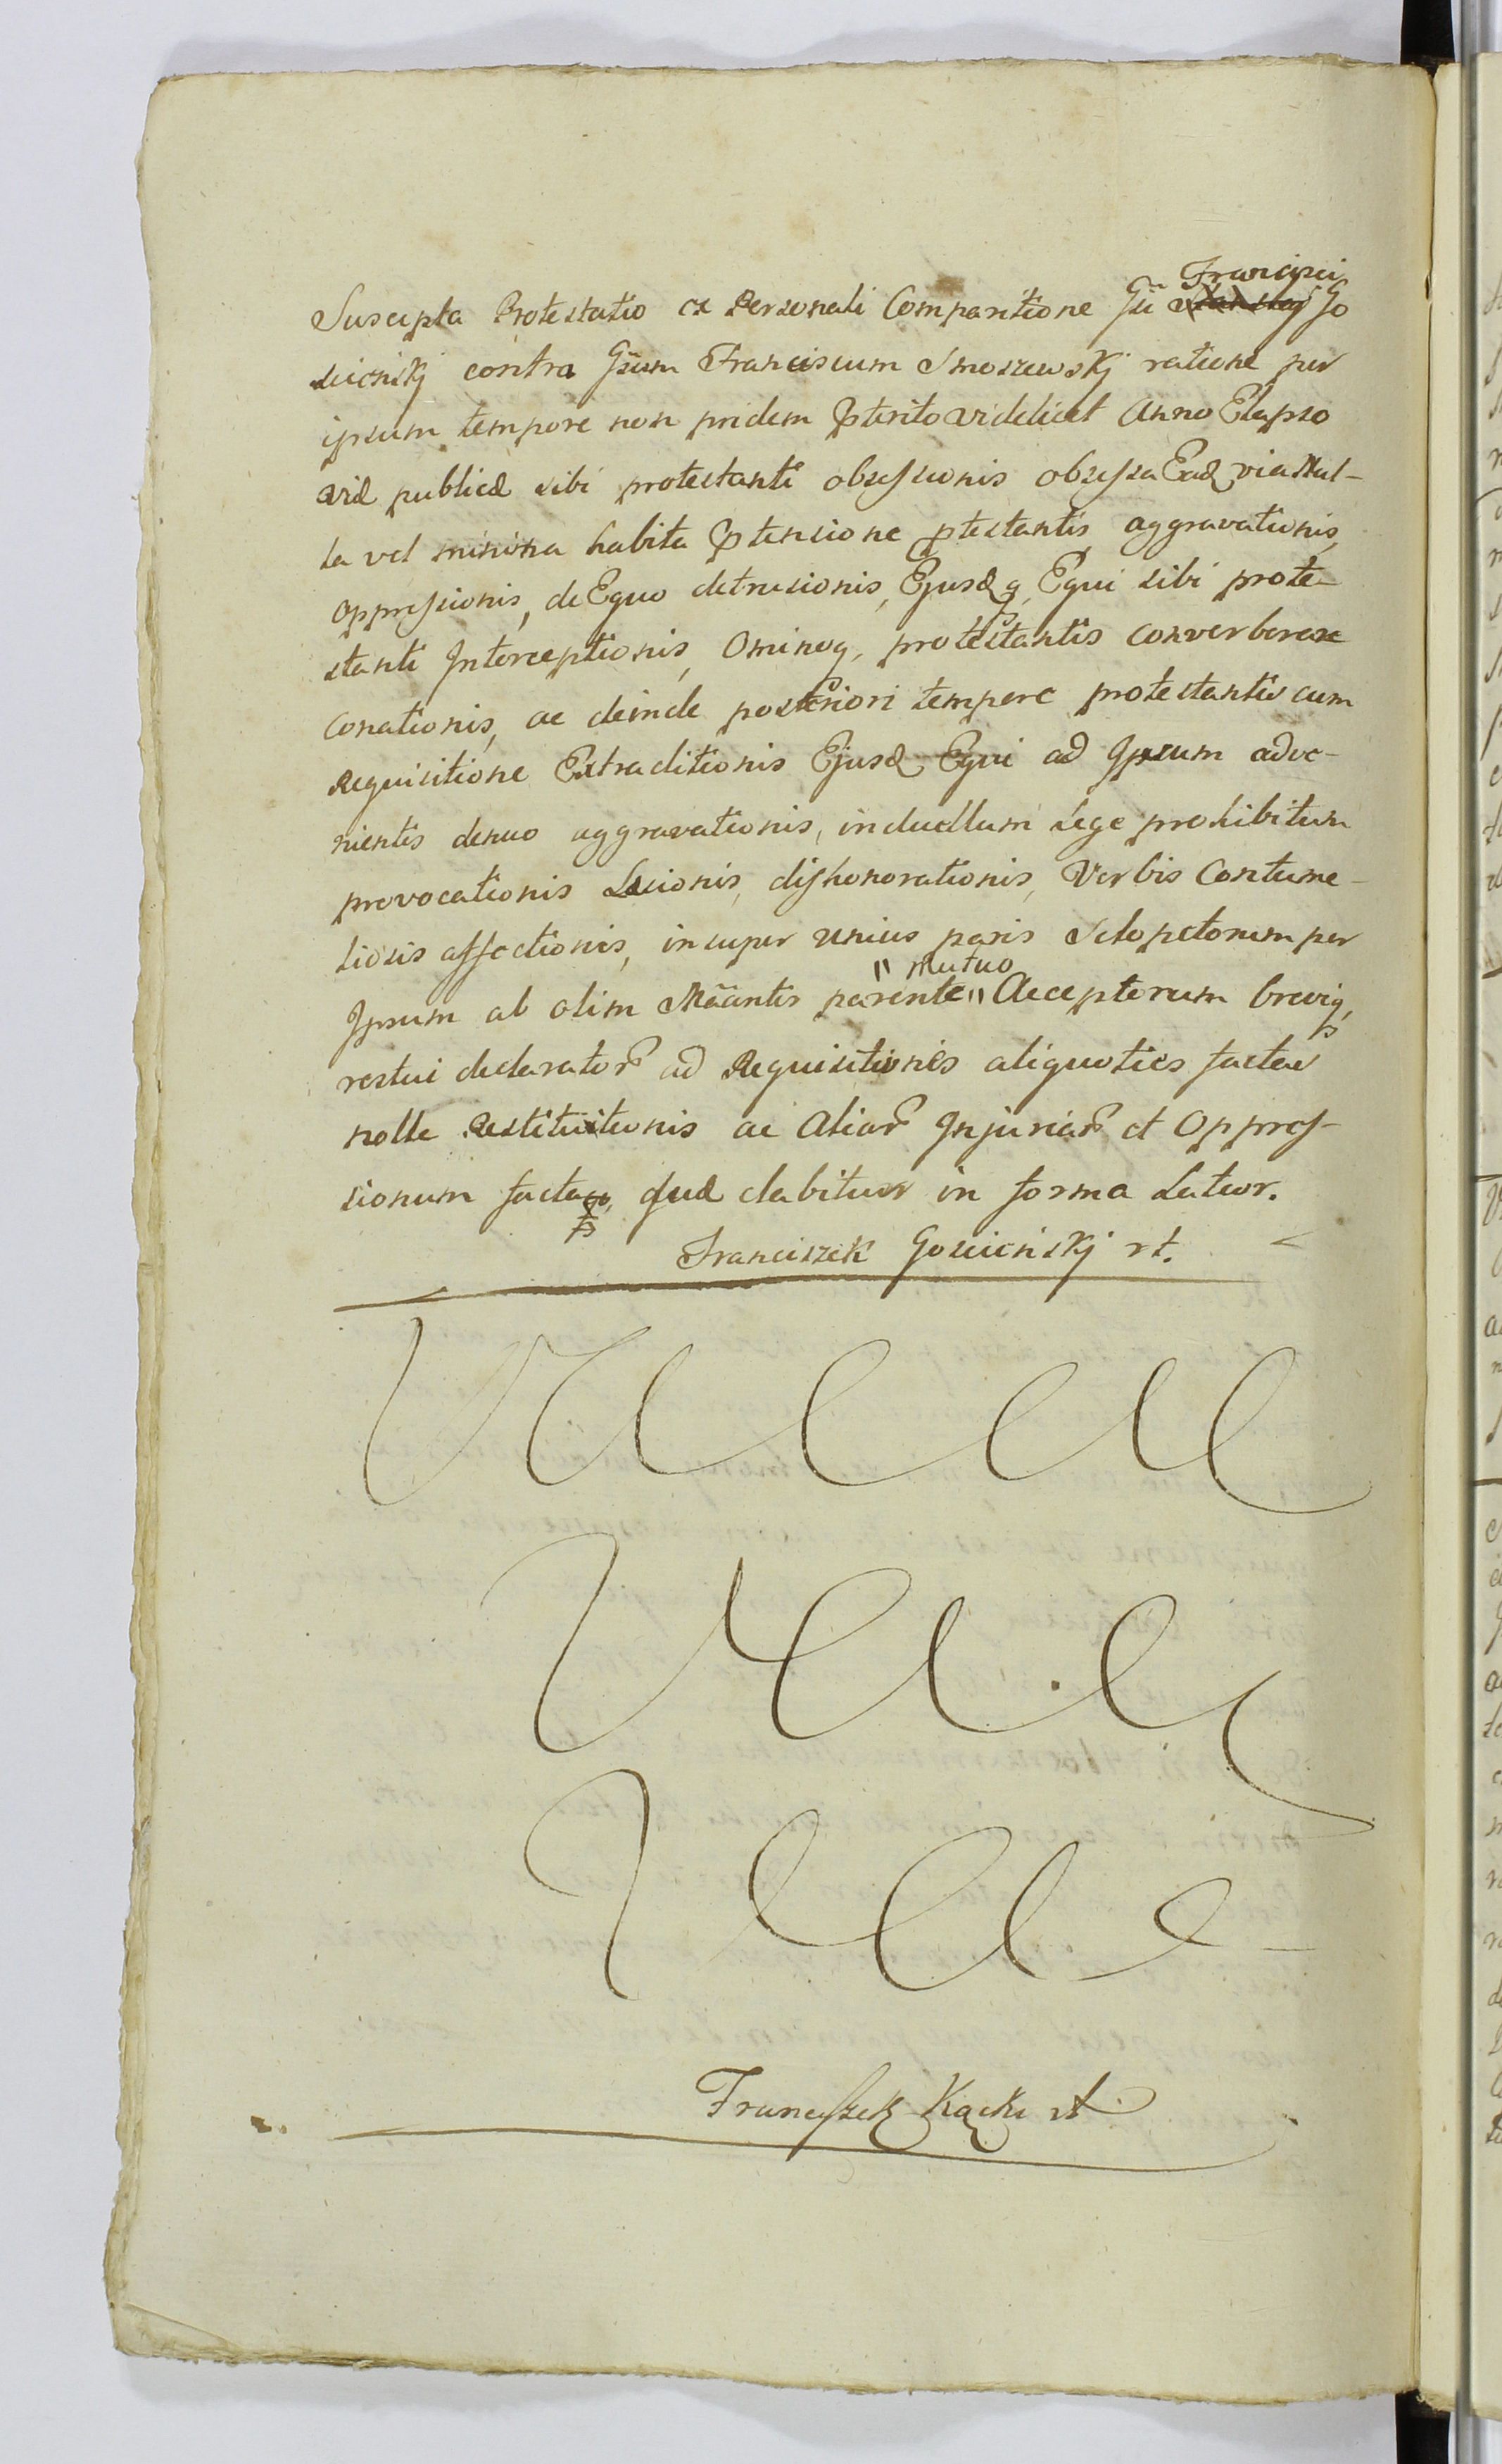 Suscepta Protestatio ex Personali Comparitione Gsi Francisci Go
scienskj contra Gsum Franciscum Smoszewskj ratione per
ipsum tempore non pridem pterito videlicet Anno Elapso
viæ publicæ sibi protestanti obsessionis obsessa Eadq via Nul-
la vel minima habita ptensione ptestantis aggravationis,
oppressionis, de Equo detrusionis, Ejusdq, Equi sibi prote-
stanti Interceptionis, Ominoq, protestantis converberare
conationis, ac deinde posteriori tempore protestantis cum
Requisitione Extraditionis Ejusd Equi ad Ipsum adve-
nientis denuo aggravationis, in duellum Lege prohibitum
provocationis Læsionis, dishonorationis, Verbis Contume-
liosis affectionis, insuper unius paris Sclopetorum per
Ipsum ab olim Mãantis parente " mutuo " Acceptorum breviq,
restui declarator ad Requisitiones aliquoties factas
nolle Restitutionis ac Aliar Injuriar et Oppres-
sionum factar, quæ dabitur in forma Latior.
Franciszek Goscienskj rt.
Franciszek Kącki rt